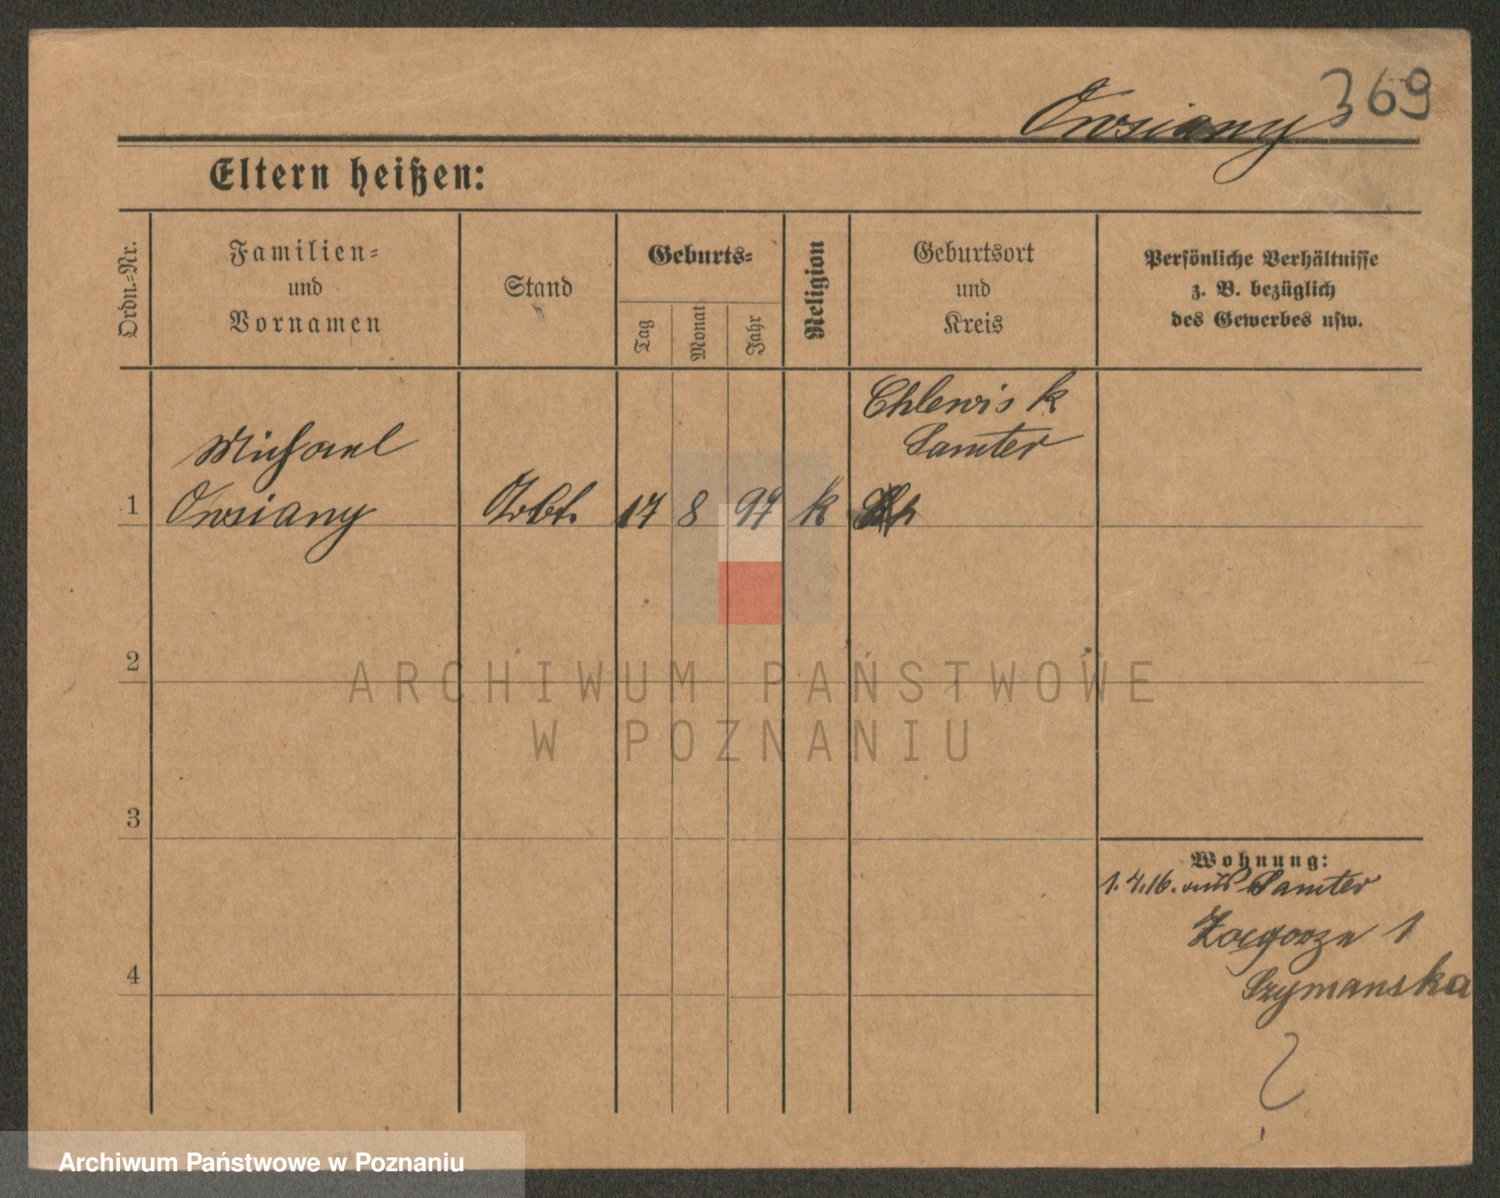 Owsiany
369
Eltern heißen:
Ordn.-Nr.
Familien-
und
Vornamen
Stand
Geburts-
Tag
Monat
Jahr
Religion
Geburtsort
und
Kreis
Persönliche Verhältnisse
z. B. bezüglich
des Gewerbes usw.
Chlewisk
Samter
Michael
1 Owsiany Arbt. 17 8 97 k
2
ARCHIWUM PAŃSTWOWE
W POZNANIU
3
Wohnung:
1.4.16. aus Samter
Zagorze 1
4
Szymanska
?
Archiwum Państwowe w Poznaniu